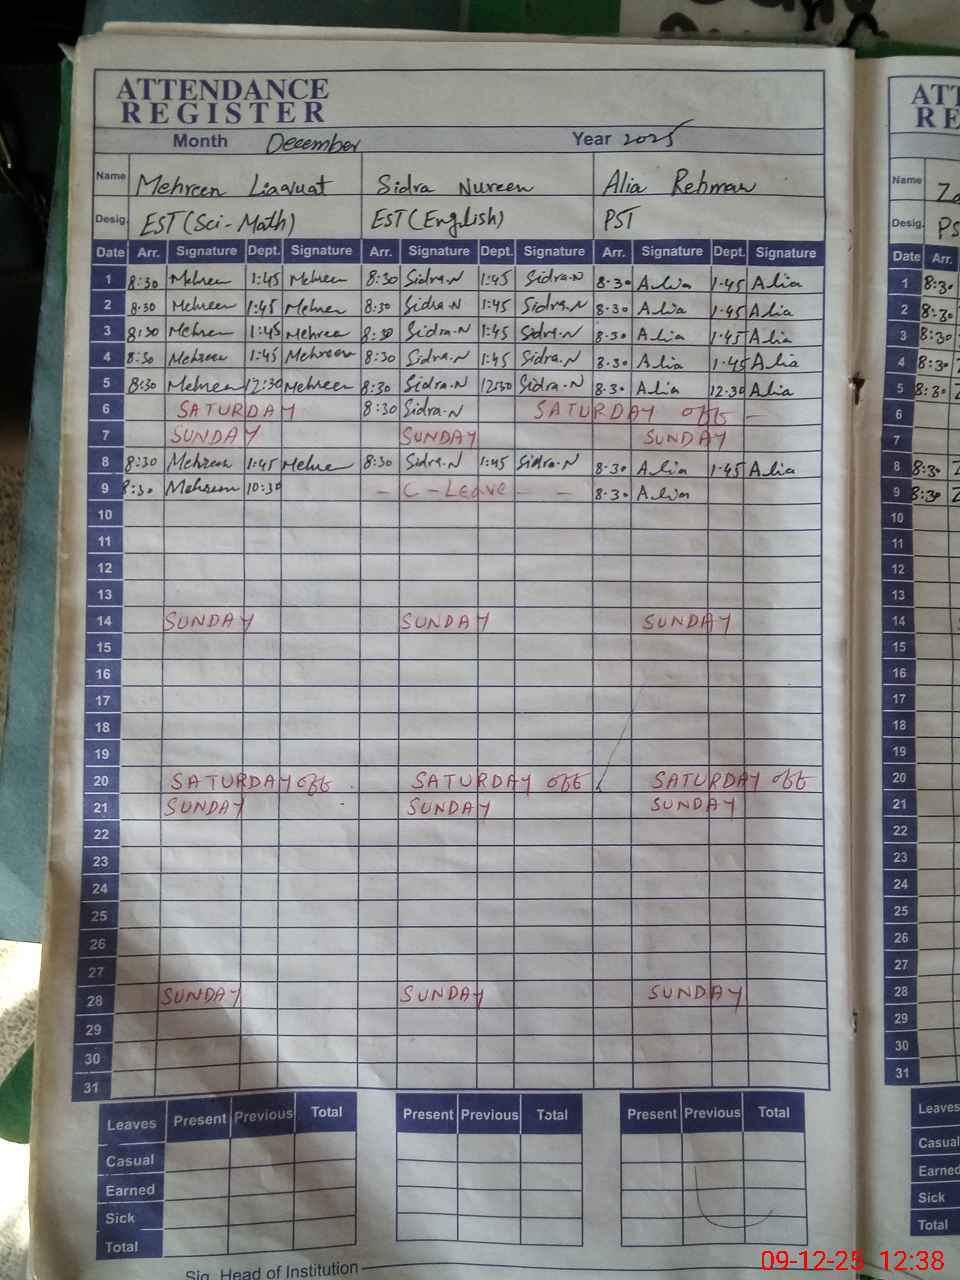 ATTENDANCE
REGISTER
Month December Year 2025
Name Mehreen Liaquat Sidra Nureen Alia Rehman
Desig. EST (Sci-Math) EST (English) PST
Date Arr. Signature Dept. Signature Arr. Signature Dept. Signature Arr. Signature Dept. Signature
1 8:30 Mehreen 1:45 Mehreen 8:30 Sidra.N 1:45 Sidra.N 8.30 Alia 1.45 Alia
2 8:30 Mehreen 1:45 Mehreen 8:30 Sidra.N 1:45 Sidra.N 8.30 Alia 1.45 Alia
3 8:30 Mehreen 1:45 Mehreen 8:30 Sidra.N 1:45 Sidra.N 8.30 Alia 1.45 Alia
4 8:30 Mehreen 1:45 Mehreen 8:30 Sidra.N 1:45 Sidra.N 8.30 Alia 1.45 Alia
5 8:30 Mehreen 12:30 Mehreen 8:30 Sidra.N 12:30 Sidra.N 8.30 Alia 12.30 Alia
6 SATURDAY 8:30 Sidra.N SATURDAY off -
7 SUNDAY SUNDAY SUNDAY
8 8:30 Mehreen 1:45 Mehre 8:30 Sidra.N 1:45 Sidra.N 8.30 Alia 1.45 Alia
9 8:30 Mehreen 10:30 - C-Leave - - 8.30 Alia
10
11
12
13
14 SUNDAY SUNDAY SUNDAY
15
16
17
18
19
20 SATURDAY off SATURDAY off SATURDAY off
21 SUNDAY SUNDAY SUNDAY
22
23
24
25
26
27
28 SUNDAY SUNDAY SUNDAY
29
30
31
Leaves Present Previous Total Present Previous Total Present Previous Total
Casual
Earned
Sick
Total
Sig. Head of Institution
Name
Desig. PS
Date Arr.
1 8:30
2 8:30
3 8:30
4 8:30
5 8:30
6
7
8 8:30
9 8:30
10
11
12
13
14
15
16
17
18
19
20
21
22
23
24
25
26
27
28
29
30
31
Leaves
Casual
Earned
Sick
Total
09-12-25 12:38